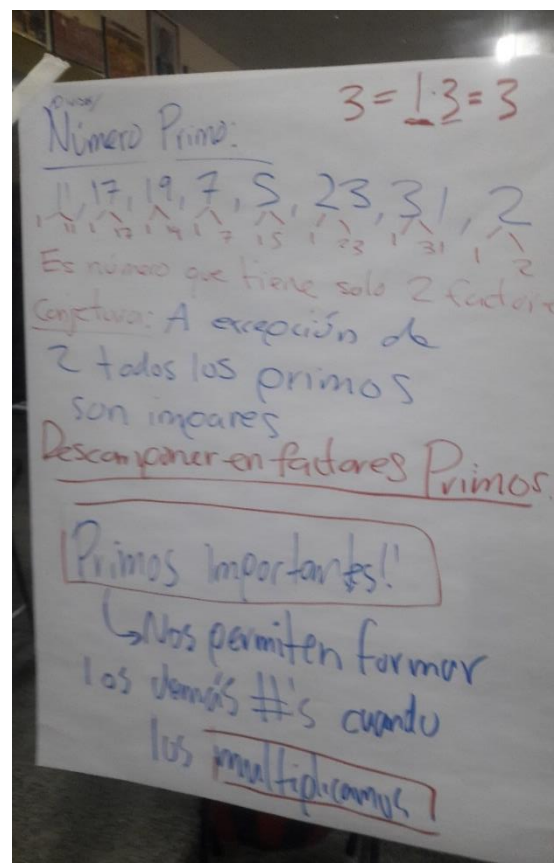 3 = 1·3 = 3
Número Primo:
11, 17, 19, 7, 5, 23, 31, 2
1 11 1 17 1 19 1 7 1 5 1 23 1 31 1 2
Es número que tiene solo 2 factores
Conjetura: A excepción de
2 todos los primos
son impares
Descomponer en factores Primos.
Primos importantes!!
↳Nos permiten formar
los demás #'s cuando
los multiplicamos